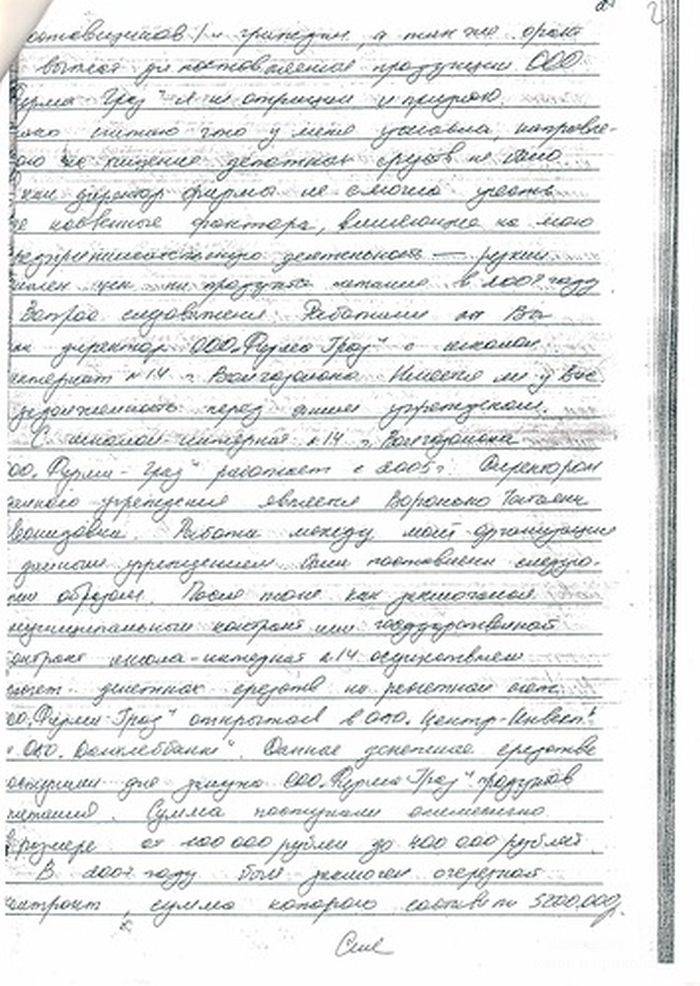 2
а так же
выплат за поставленные продукции ООО
Фирма Град" я не отрицаю и признаю.
считаю что у меня умысла, направле-
на хищение денежных средств не было.
как директор фирмы не смогла учесть
косвенные фактора, влияющие на мою
предпринимательскую деятельность — резкий
цен на продукты питания в 2007 году
Вопрос следователя: Работали ли Вы
директор ООО „Фирма Град" с школой
интернат №14 г. Волгодонска Имеется ли у Вас
задолженность перед этим учреждением.
С школой-интернат №14 г. Волгодонска
ОО „Фирма-Град" работает с 2005г. Директором
данного учреждения является Татьяна
Работа между моей организации
данным учреждением были поставлены следую-
образом. После того как заключался
муниципальный контракт или государственный
онтракт школа-интернат №14 осуществлял
денежных средств на расчетный счет
ОО „Фирма Град" открытой в ОАО „Центр-Инвест"
и ОАО „Донхлеббанк". Данные денежные средства
поступали для закупа ООО „Фирма Град" продуктов
питания. Сумма поступали ежемесячно
в размере от 200 000 рублей до 400 000 рублей.
В 2007 году был заключен очередной
контракт, сумма которого составила 5200.000р.